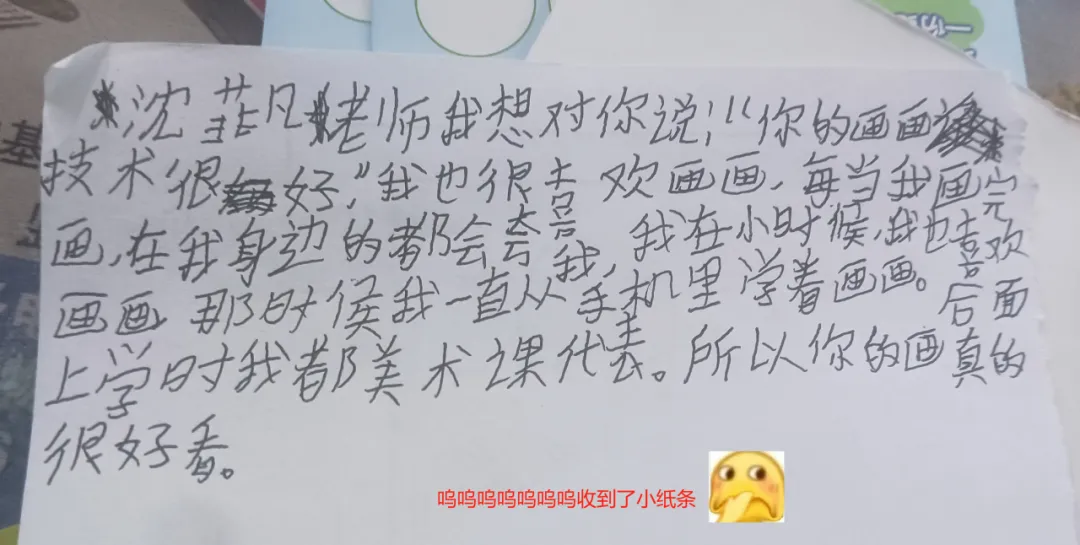 沈菲凡老师我想对你说:“你的画画
技术很好,”我也很喜欢画画,每当我画完
画,在我身边的都会夸我,我在小时候,我也喜欢
画画,那时候我一直从手机里学着画画。后面
上学时我都美术课代表。所以你的画真的
很好看。
呜呜呜呜呜呜呜收到了小纸条